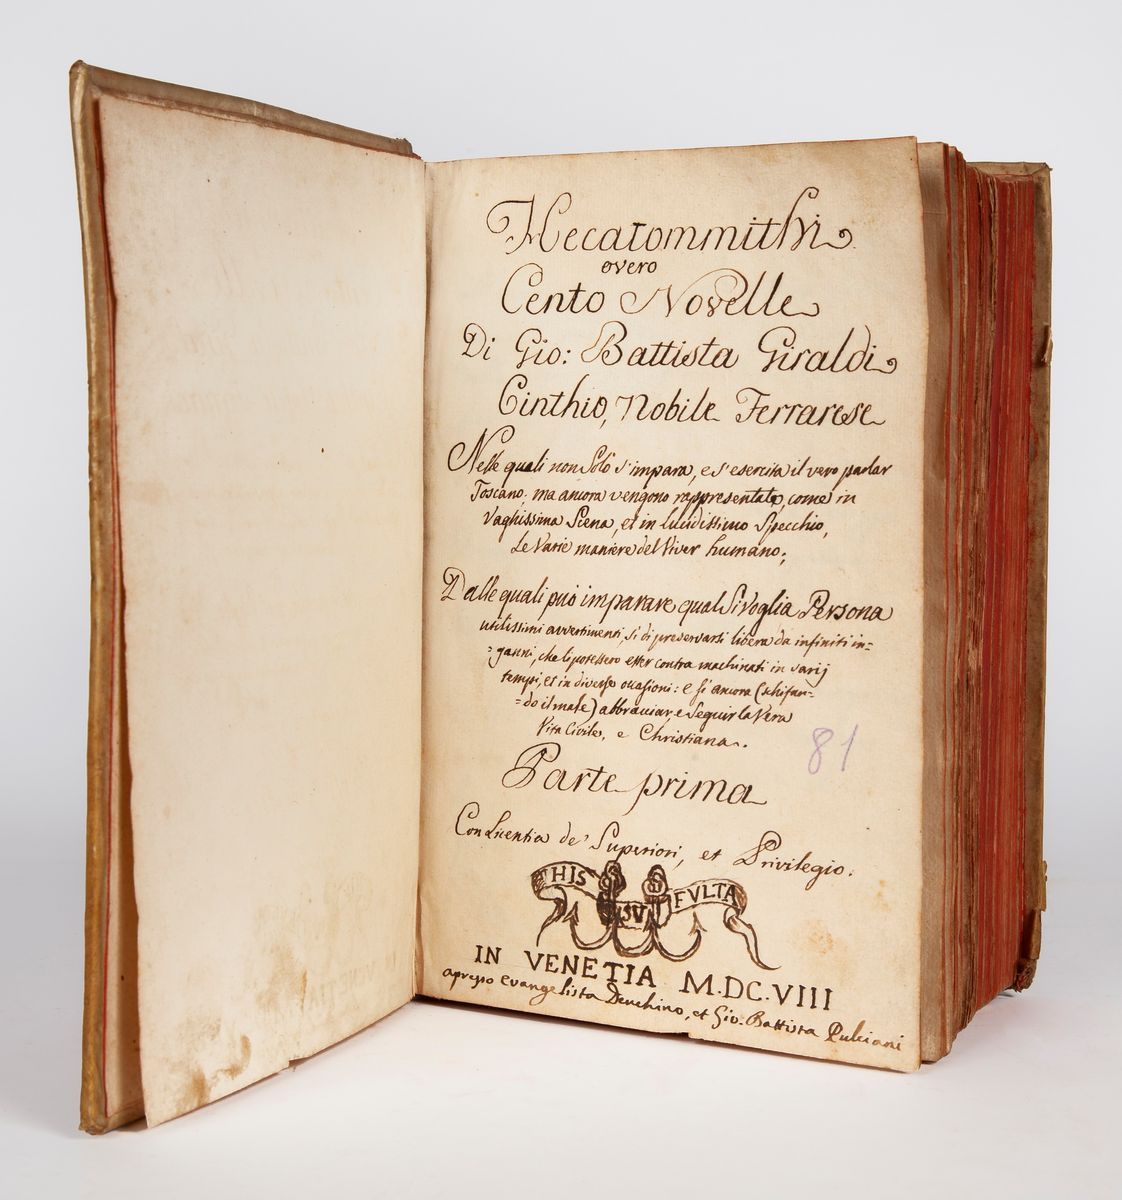 Hecatommithi
overo
Cento Novelle
Di Gio: Battista Giraldi
Cinthio, Nobile Ferrarese
Nelle quali non Solo s'impara, e s'esercita il vero parlar
Toscano, ma ancora vengono rappresentate, come in
Vaghissima Scena, et in lucidissimo Specchio,
Le Varie maniere del Viver humano;
Dalle quali può imparare qual Si Voglia Persona
utilissimi avvertimenti, si di preservarsi libera da infiniti in=
=ganni, che li potessero esser contra machinati in varij
tempi, et in diverse occasioni: e si ancora (schifan=
=do il male) abbracciar, e Seguir la Vera
Vita Civile, e Christiana.
81
Parte prima
Con Licentia de' Superiori, et Privilegio.
HIS SV FVLTA
IN VENETIA M.DC.VIII
apresso Evangelista Deuchino, et Gio. Battista Pulciani